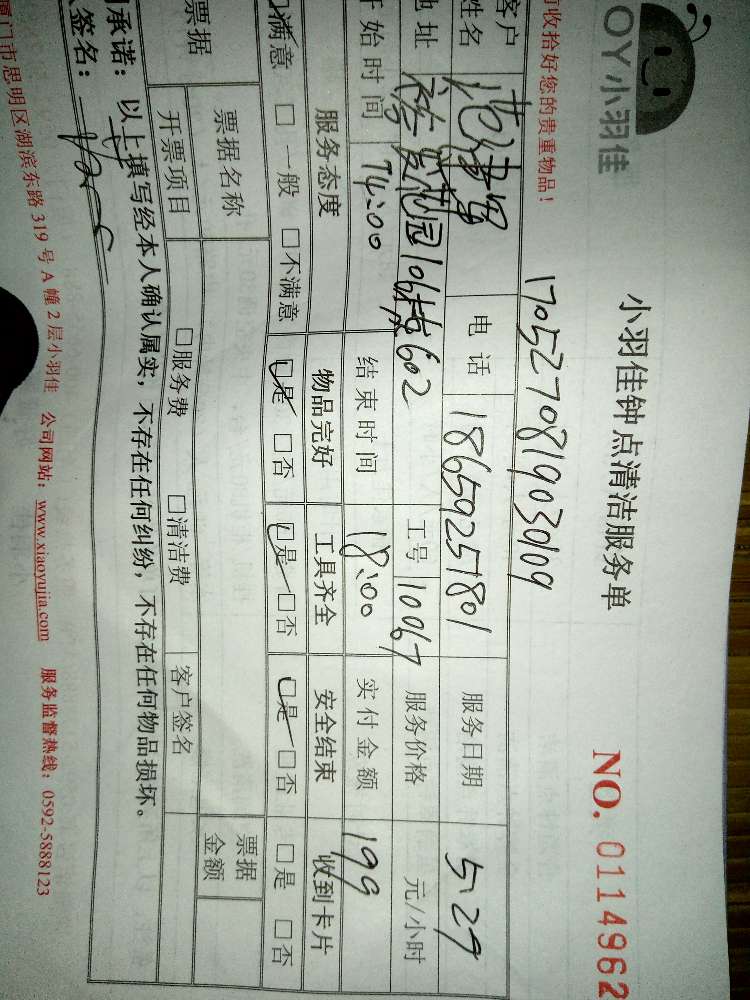 OY小羽佳
收拾好您的贵重物品！
小羽佳钟点清洁服务单
NO. 0114962
17052708190309
客户姓名 电话 18659251801 服务日期 5.29
地址 裕发花园106602 工号 10067 服务价格 元/小时
开始时间 14:00 结束时间 18:00 实付金额 199
服务态度 物品完好 工具齐全 安全结束 收到卡片
满意 □一般 □不满意 □是 □否 □是 □否 □是 □否 □是 □否
票据 票据名称 票据金额
开票项目 □服务费 □清洁费 客户签名
承诺：以上填写经本人确认属实，不存在任何纠纷，不存在任何物品损坏。
签名：
厦门市思明区湖滨东路 319 号 A 幢 2 层小羽佳 公司网站：www.xiaoyujia.com 服务监督热线：0592-5888123